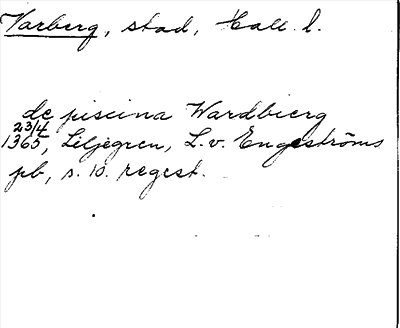 Varberg, stad, Hall l.
de piscina Wardbierg
23/4
1365, Liljegren, L. v. Engeströms
pb, s. 10. regest.